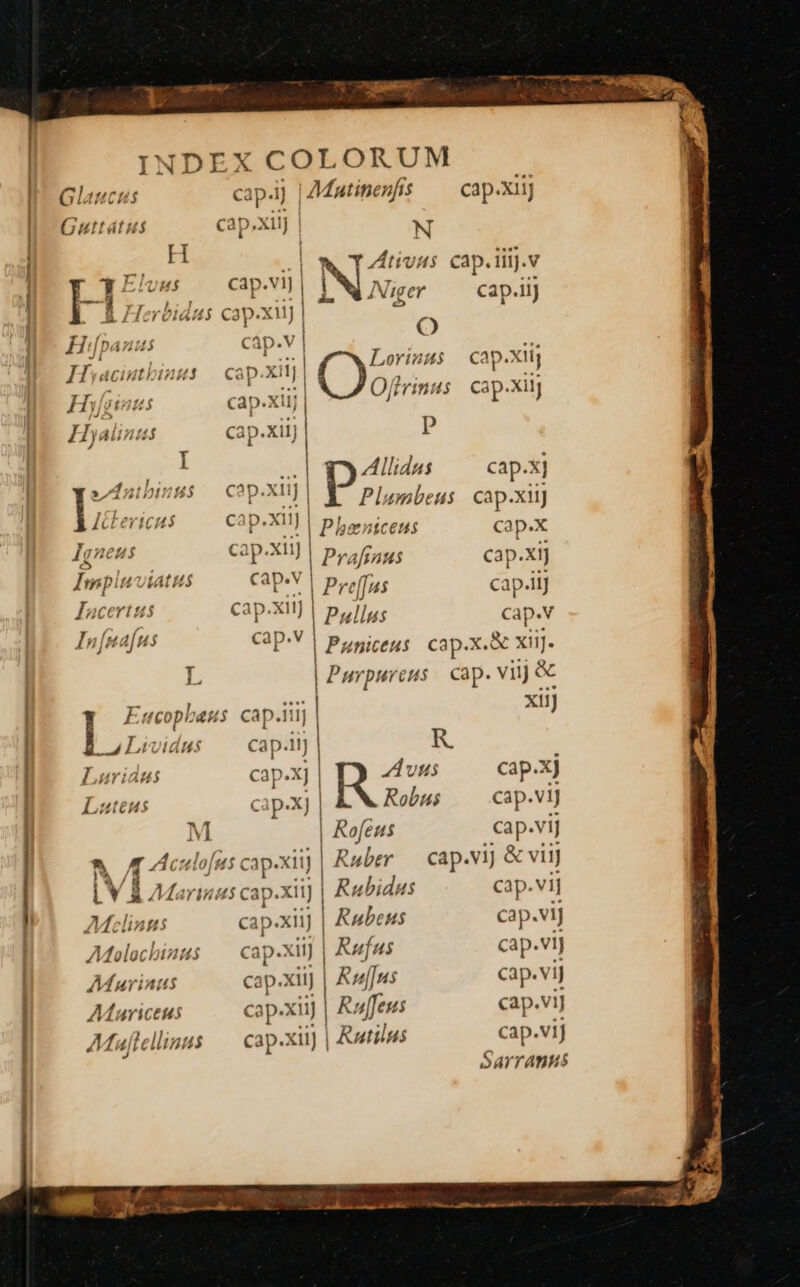 INDEX COLORUM
Glaucus cap.ij
Guttatus cap.xiij
H
HElvus cap.vij
Herbidus cap.xiij
Hiſpanus cap.v
Hyacinthinus cap.xiij
Hyſginus cap.xiij
Hyalinus cap.xiij
I
IAnthinus cap.xiij
Ictericus cap.xiij
Igneus cap.xiij
Impluviatus cap.v
Incertus cap.xiij
Inſuaſus cap.v
L
LEucophæus cap.iiij
Lividus cap.iij
Luridus cap.xj
Luteus cap.xj
M
MAculoſus cap.xiij
Marinus cap.xiij
Melinus cap.xiij
Molochinus cap.xiij
Murinus cap.xiij
Muriceus cap.xiij
Muſtellinus cap.xiij
Mutinenſis cap.xiij
N
NAtivus cap.iiij.v
Niger cap.iij
O
OLorinus cap.xiij
Oſtrinus cap.xiij
P
PAllidus cap.xj
Plumbeus cap.xiij
Phæniceus cap.x
Praſinus cap.xij
Preſſus cap.iij
Pullus cap.v
Puniceus cap.x.& xiij.
Purpureus cap. viij &
xiij
R
RAvus cap.xj
Robus cap.vij
Roſeus cap.vij
Ruber cap.vij & viij
Rubidus cap.vij
Rubeus cap.vij
Rufus cap.vij
Ruſſus cap.vij
Ruſſeus cap.vij
Rutilus cap.vij
Sarranus